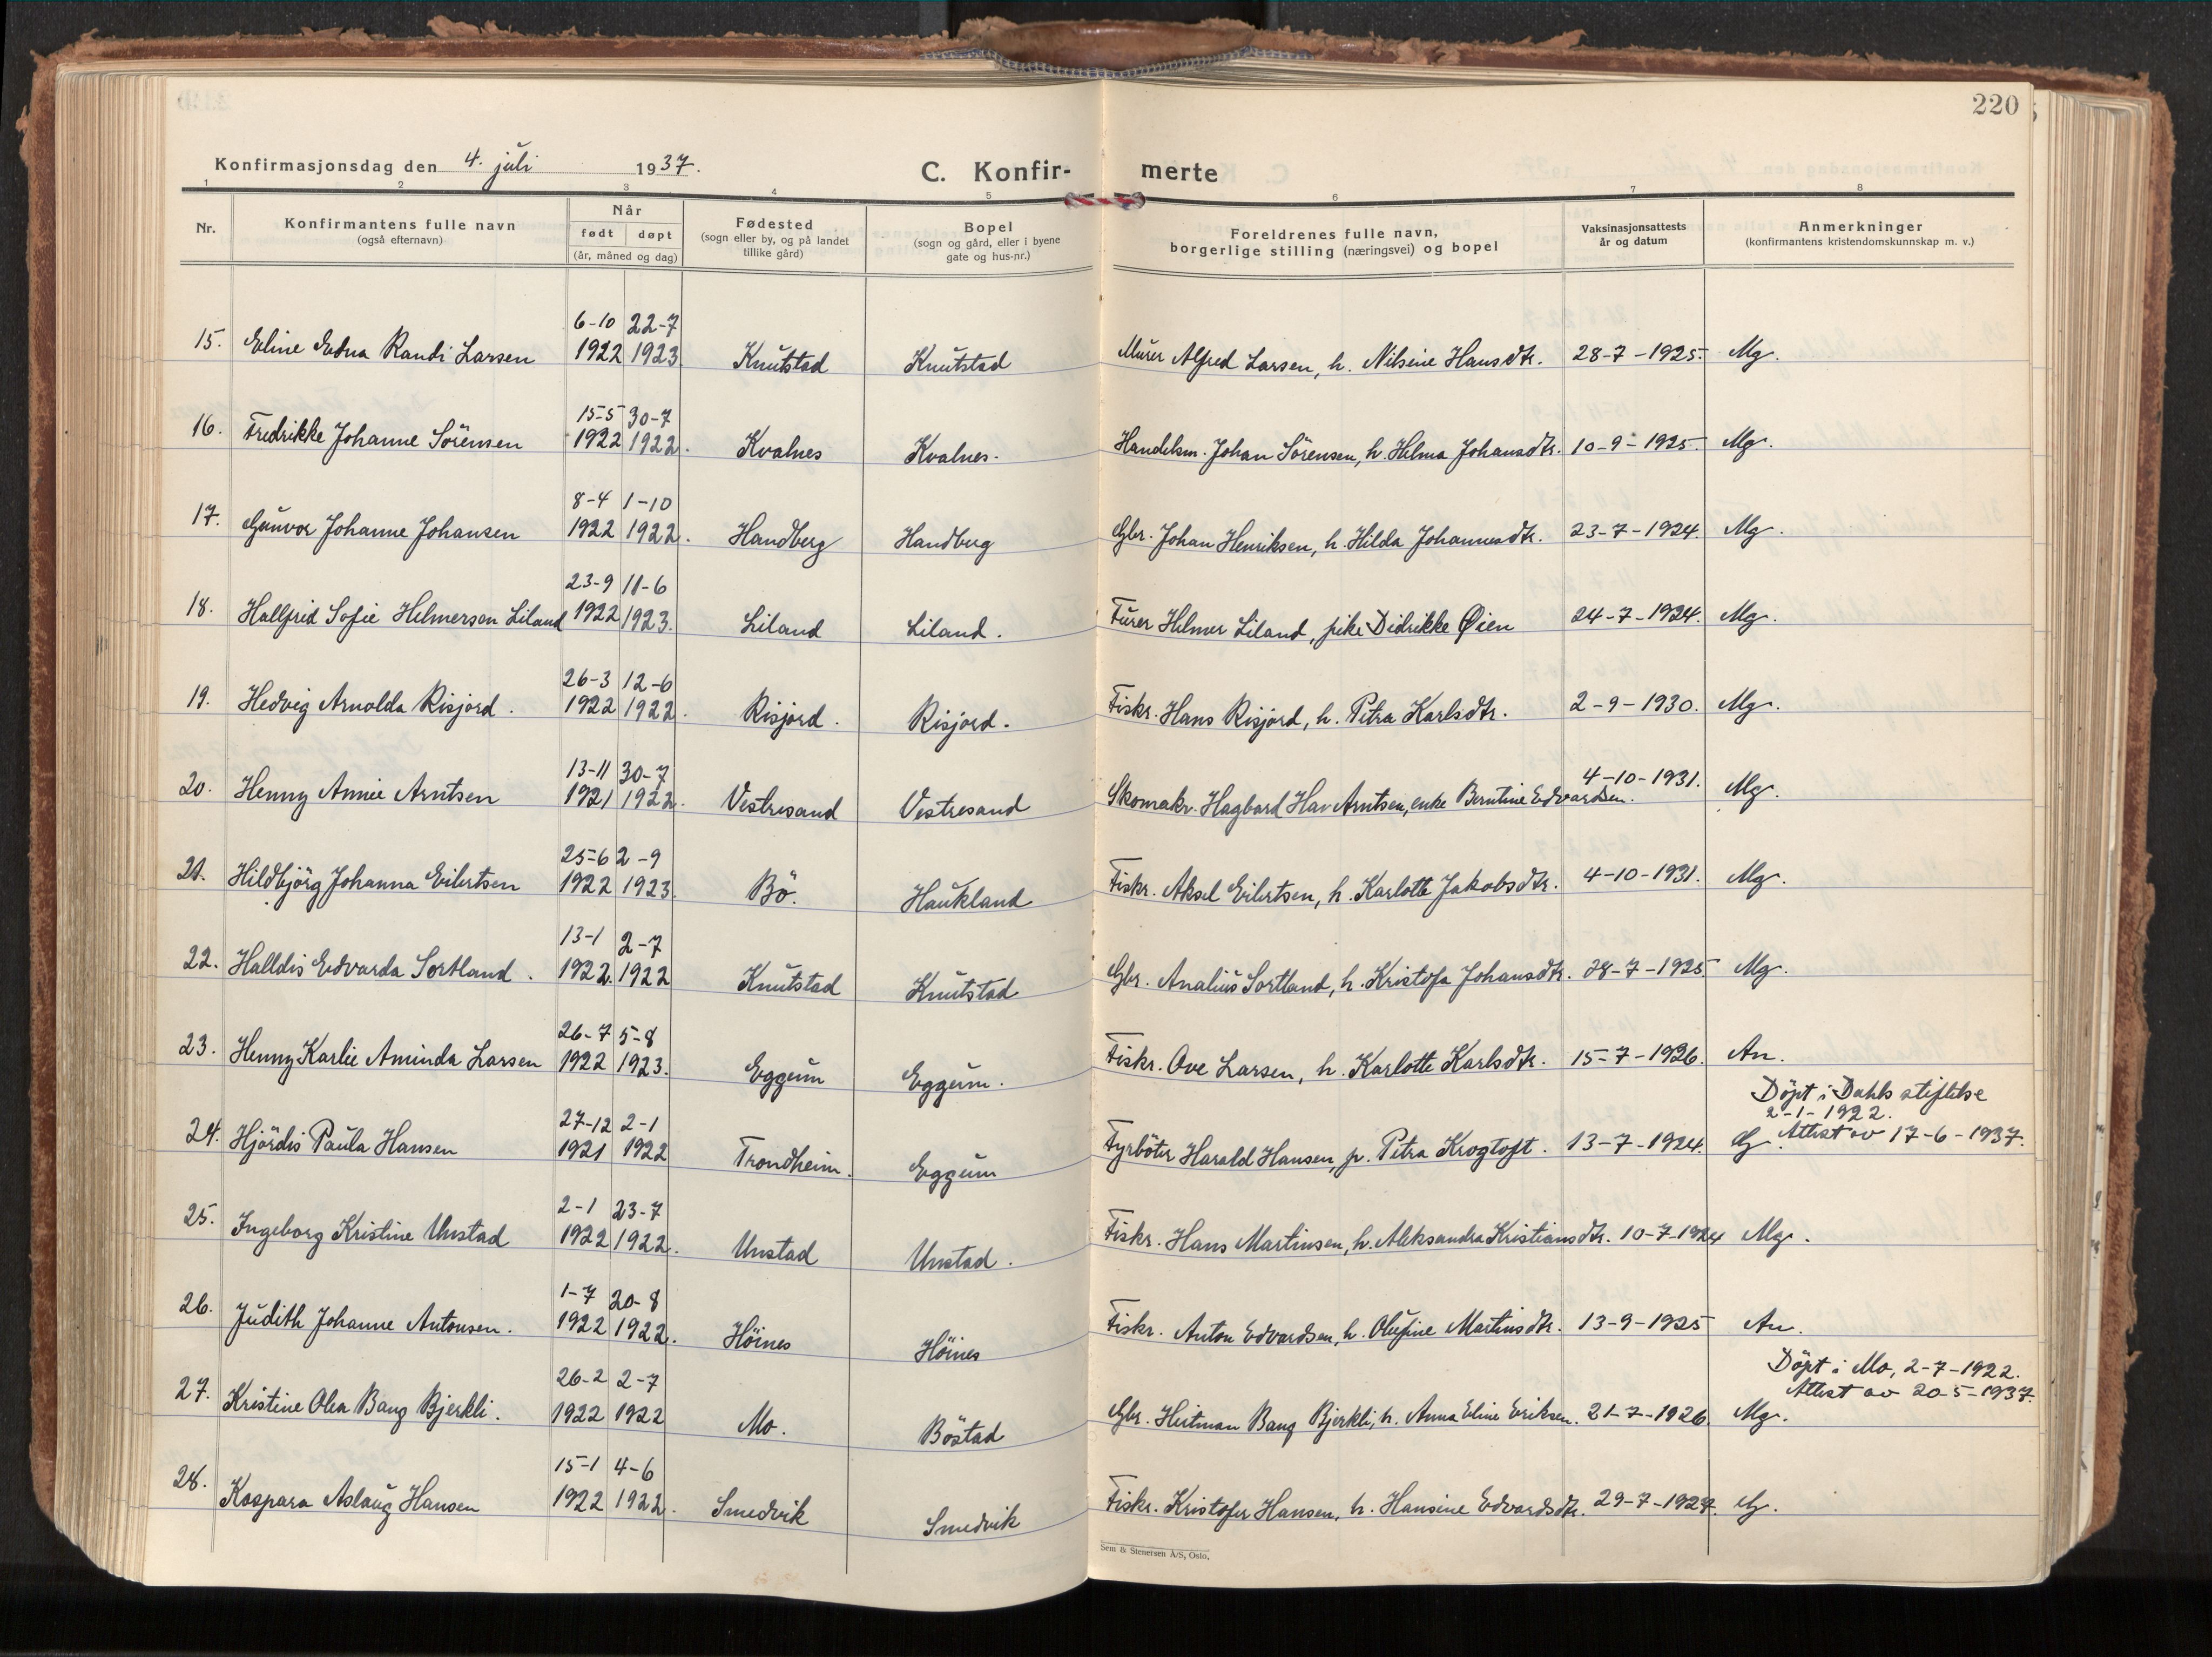 220
Konfirmasjonsdag den 4. juli 1937.
C. Konfir- merte
1 2 3 4 5 6 7 8
Nr.
Konfirmantens fulle navn
(også efternavn)
Når
født døpt
(år, måned og dag)
Fødested
(sogn eller by, og på landet
tillike gård)
Bopel
(sogn og gård, eller i byene
gate og hus-nr.)
Foreldrenes fulle navn,
borgerlige stilling (næringsvei) og bopel
Vaksinasjonsattests
år og datum
Anmerkninger
(konfirmantens kristendomskunnskap m. v.)
6-10 22-7
15. Eline Edna Randi Larsen 1922 1923 Knutstad Knutstad Murer Alfred Larsen, h. Nilsine Hansdtr. 28-7-1925. Mg.
15-5 30-7
16. Fredrikke Johanne Sörensen 1922 1922. Kvalnes Kvalnes. Handelsm. Johan Sörensen, h. Helma Johansdtr. 10-9-1925. Mg.
8-4 1-10
17. Gunvor Johanne Johansen 1922 1922. Handberg Handberg Gbr. Johan Henriksen, h. Hilda Johannesdtr. 23-7-1924. Mg.
23-9 11-6
18. Hallfrid Sofie Helmersen Liland 1922 1923. Liland Liland. Furer Helmer Liland, pike Didrikke Øien 24-7-1924. Mg.
26-3 12-6
19. Hedvig Arnolda Risjord. 1922 1922. Risjord. Risjord. Fiskr. Hans Risjord, h. Petra Karlsdtr. 2-9-1930. Mg.
13-11 30-7
20. Henny Annie Arntsen 1921 1922. Vestresand Vestresand Skomakr. Hagbard Hav Arntsen, enke Berntine Edvardsen. 4-10-1931. Mg.
25-6 2-9
21. Hildbjörg Johanna Eilertsen 1922 1923. Bö. Haukland Fiskr. Aksel Eilertsen, h. Karlotte Jakobsdtr. 4-10-1931. Mg.
13-1 2-7
22. Halldis Edvarda Sortland. 1922. 1922 Knutstad Knutstad Gbr. Analius Sortland, h. Kristofa Johansdtr. 28-7-1925 Mg.
26-7 5-8
23. Henny Karlie Aminda Larsen 1922 1923. Eggum Eggum. Fiskr. Ove Larsen, h. Karlotte Karlsdtr. 15-7-1926. An.
Döpt i Dahls stiftelse
2-1-1922.
27-12 2-1 Attest av 17-6-1937.
24. Hjördis Paula Hansen 1921 1922 Trondheim. Eggum Fyrböter Harald Hansen, p. Petra Krogtoft. 13-7-1924. G
2-1 23-7
25. Ingeborg Kristine Unstad 1922 1922. Unstad Unstad. Fiskr. Hans Martinsen, h. Aleksandra Kristiansdtr. 10-7-1924 Mg.
1-7 20-8
26. Judith Johanne Antonsen. 1922 1922. Höines Höines Fiskr. Anton Edvardsen, h. Olufine Martinsdtr. 13-9-1925 An.
Döpt i Mo, 2-7-1922.
26-2 2-7 Attest av 20-5-1937.
27. Kristine Olea Bang Bjerkli. 1922 1922 Mo. Böstad Gbr. Heitman Bang Bjerkli, h. Anna Eline Eriksen. 21-7-1926. Mg.
15-1 4-6
28. Kaspara Aslaug Hansen 1922 1922. Smedvik Smedvik Fiskr. Kristofer Hansen, h. Hansine Edvardsdtr. 29-7-1924. G.
Sem & Stenersen A/S, Oslo.